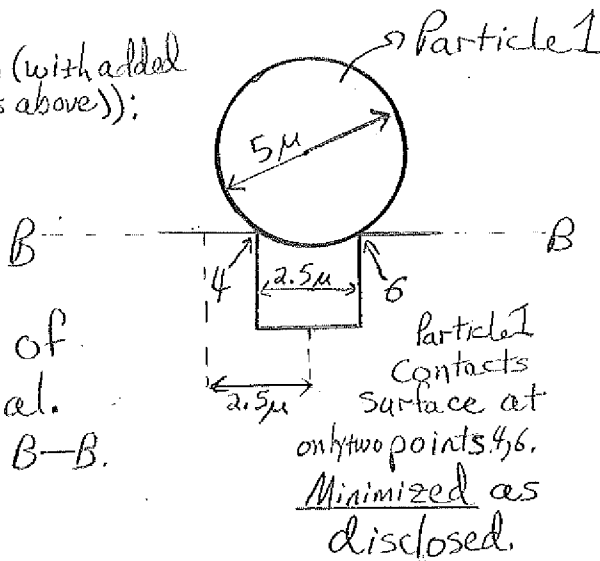 Particle 1
(with added
s above)):
5μ
B
B
4
2.5μ
6
of
al.
B—B.
2.5μ
Particle 1
Contacts
surface at
only two points 4,6.
Minimized as
disclosed.